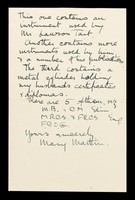 This one contains an
instrument used by
Mr Lawson Tait
Another contains more
instruments used by him
& a number of his publications
The third contains a
metal cylinder holding
my husbands certificates
& diplomas.
There are 5 of them, viz
M.B. - C.M. Edin
M.R.C.S. & F.R.C.S. Eng
F.R.C.S.
Yours sincerely
Mary Martin.